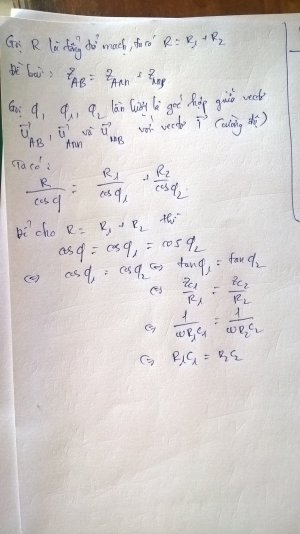 Gọi R là tổng trở mạch, ta có R = R₁ + R₂
Đề bài: Z_AB = Z_AM + Z_MB
Gọi φ, φ₁, φ₂ lần lượt là góc hợp giữa vectơ
U⃗_AB, U⃗_AM và U⃗_MB với vectơ I⃗ (cường độ)
Ta có:
R/cosφ = R₁/cosφ₁ + R₂/cosφ₂
Để cho R = R₁ + R₂ thì
cosφ = cosφ₁ = cosφ₂
⇔ cosφ₁ = cosφ₂ ⇔ tanφ₁ = tanφ₂
⇔ Z_C1/R₁ = Z_C2/R₂
⇔ 1/ωR₁C₁ = 1/ωR₂C₂
⇔ R₁C₁ = R₂C₂